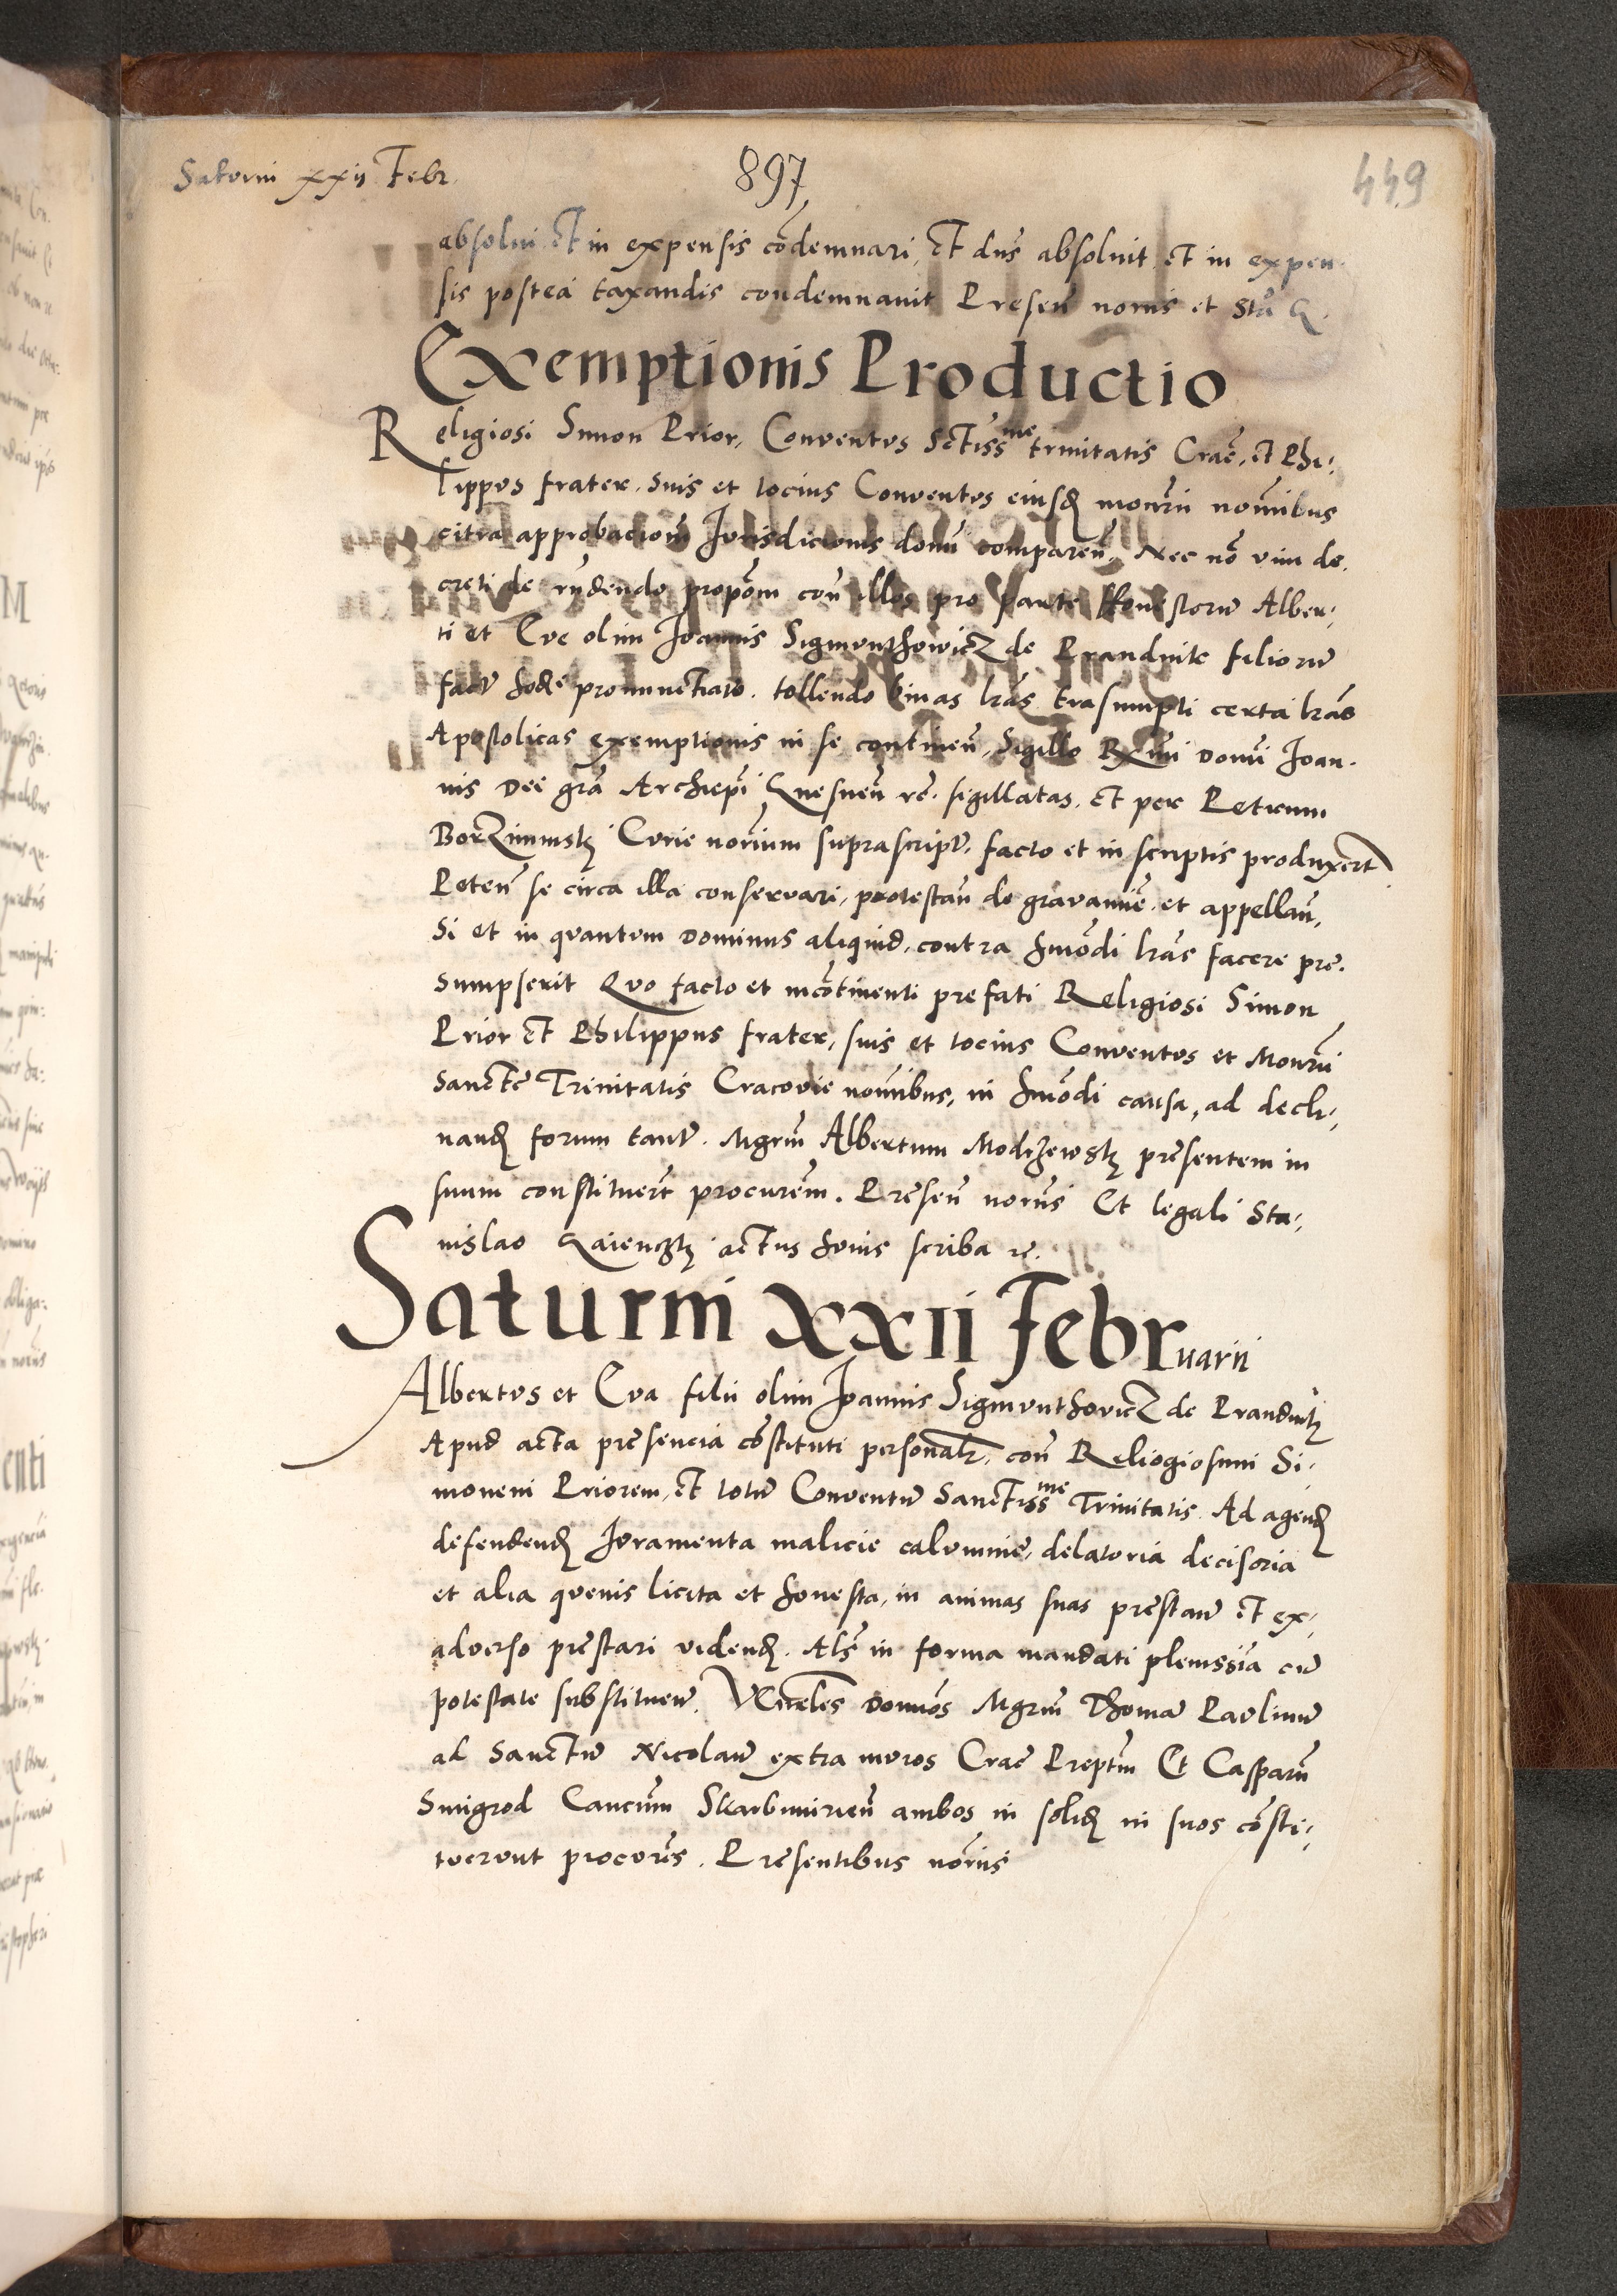 Saturni xxii Febr.
897
449
absolui et in expensis cōdemnari, Et dn̄s absoluit et in expen-
sis postea taxandis condemnauit Presen̄ noriis et Sta G.
Exemptionis Productio
Religiosi Simon Prior, Conventus Sctiss^me trinitatis Crac̄, et Phi-
lippus frater, suis et tocius Conventus eiusd monrii noīnibus
citra approbacionē Jurisdicionis domī comparen̄, Nec nō vim de-
creti de rn̄dendo propōm con̄ illos pro parte Honestorū Alber-
ti et Eve olim Joannis Sigmunthowicz de Prandnik filiorū
fact hodie pronunctiato, tollendo binas lrās trasumpti certa lrās
Apostolicas exemptionis in se continen̄, Sigillo Rx̄mi Domī Joan-
nis Dei grā Archiepī Gnesnen̄ re. sigillatas, Et per Petrum
Borziminsky Curie norium suprascript, facto et in scriptis produxert
Peten̄ se circa illa conservari, protestan̄ de gravamīe et appellan̄,
Si et in quantum Dominus aliquid, contra hmōdi lrās facere pre-
sumpserit Quo facto et incōtinenti prefati Religiosi Simon
Prior Et Philippus frater, suis et tocius Conventus et Monrii
Sancte Trinitatis Cracovie noīnibus, in hmōdi causa, ad decli-
nand forum tant. Mgrm̄ Albertum Modrzewsky presentem in
suum constituert procurēm. Presen̄ noriis Et legali Sta-
nislao Gaienczky actus hōius scriba re.
Saturni xxii Februarii
Albertus et Eva filii olim Joannis Sigmunthovicz de Prandnik
Apud acta presencia cōstituti personalr, con̄ Reliogiosum Si-
monem Priorem, Et totū Conventū Sanctiss^me Trinitatis Ad agend
defendend Juramenta malicie calumnie, delatoria decisoria
et alia quevis licita et honesta, in animas suas prestan̄ Et ex-
adverso prestari vidend. Als in forma mandati plenissīa cū
potestate substituen̄. Vēnēles Domīos Mgrm̄ Thomā Paulinū
ad Sanctū Nicolaū extra muros Crac̄ Preptm̄ Et Casparū
Smigrod Cancūm Skarbimirien̄ ambos in solid in suos cōsti-
tuerunt procures. Presentibus nōriis